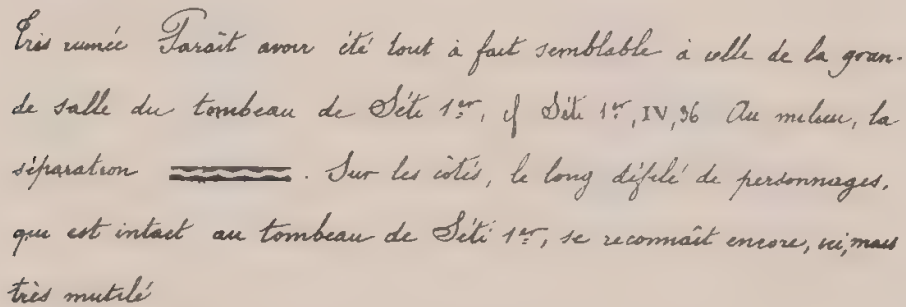 Très ruinée Paraît avoir été tout à fait semblable à celle de la gran-
de salle du tombeau de Séti 1er, cf Séti 1er, IV, 36 Au milieu, la
séparation . Sur les côtés, le long défilé de personnages,
qui est intact au tombeau de Séti 1er, se reconnaît encore, ici, mais
très mutilé